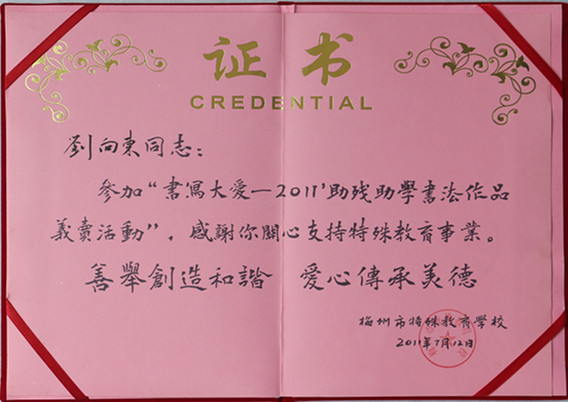 证书
CREDENTIAL
刘向东同志：
参加“書寫大爱—2011'助残助學書法作品
義賣活動”，感謝你関心支持特殊教育事業。
善舉創造和諧 爱心傳承美德
梅州市特殊教育学校
2011年7月12日